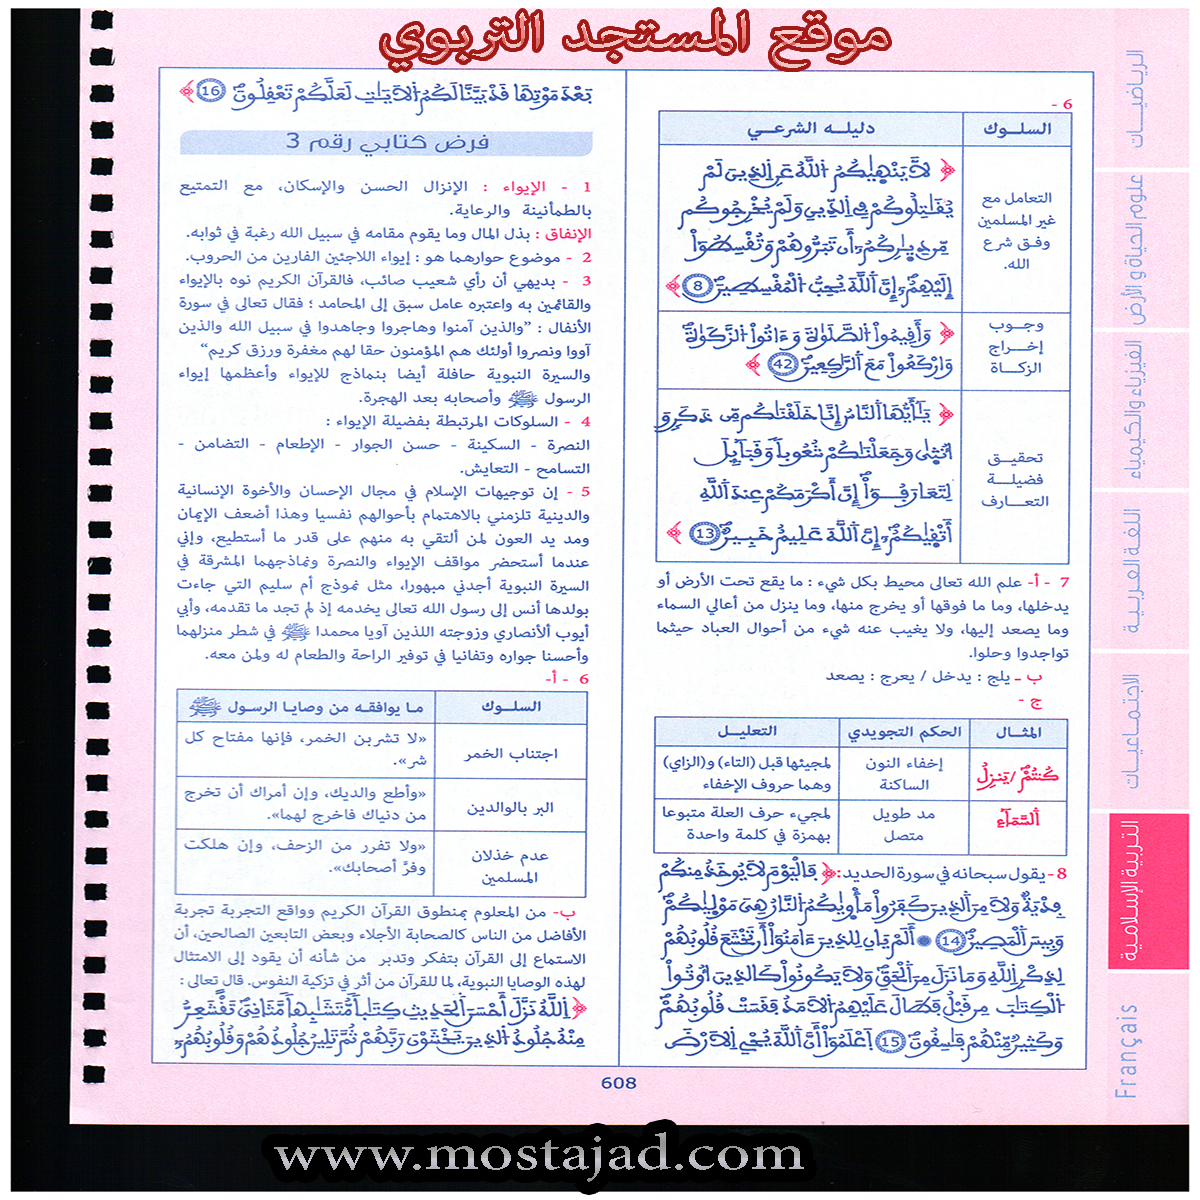 موقع المستجد التربوي
6 -
السلوك
دليله الشرعي
التعامل مع
غير المسلمين
وفق شرع
الله.
﴿ لَا يَنْهَيٰكُمُ اللَّهُ عَنِ الذِينَ لَمْ
يُقَٰتِلُوكُمْ فِي الدِّينِ وَلَمْ يُخْرِجُوكُم
مِّن دِيٰرِكُمُ أَن تَبَرُّوهُمْ وَتُقْسِطُواْ
إِلَيْهِمُ إِنَّ اَللَّهَ يُحِبُّ اَلْمُقْسِطِينَ 8 ﴾
وجوب
إخراج
الزكاة
﴿ وَأَقِيمُواْ اَلصَّلَوٰةَ وَءَاتُواْ اَلزَّكَوٰةَ
وَارْكَعُواْ مَعَ اَلرَّٰكِعِينَ 42 ﴾
تحقيق
فضيلة
التعارف
﴿ يَٰأَيُّهَا اَلنَّاسُ إِنَّا خَلَقْنَٰكُم مِّن ذَكَرٍ وَ
أُنثَىٰ وَجَعَلْنَٰكُمْ شُعُوباً وَقَبَآئِلَ
لِتَعَارَفُواْ إِنَّ أَكْرَمَكُمْ عِندَ اَللَّهِ
أَتْقَيٰكُمُ إِنَّ اَللَّهَ عَلِيمٌ خَبِيرٌ 13 ﴾
7 - أ- علم الله تعالى محيط بكل شيء : ما يقع تحت الأرض أو
يدخلها، وما ما فوقها أو يخرج منها، وما ينزل من أعالي السماء
وما يصعد إليها، ولا يغيب عنه شيء من أحوال العباد حيثما
تواجدوا وحلوا.
ب - يلج : يدخل / يعرج : يصعد
ج -
المثال
الحكم التجويدي
التعليل
كُنتُمْ / يَنزِلُ
إخفاء النون
الساكنة
لمجيئها قبل (التاء) و(الزاي)
وهما حروف الإخفاء
اَلسَّمَآءِ
مد طويل
متصل
لمجيء حرف العلة متبوعا
بهمزة في كلمة واحدة
8 - يقول سبحانه في سورة الحديد: ﴿ فَالْيَوْمَ لَا يُوخَذُ مِنكُمْ
فِدْيَةٌ وَلَا مِنَ اَلذِينَ كَفَرُواْ مَأْوٰيكُمُ اَلنَّارُ هِيَ مَوْلَيٰكُمْ
وَبِيسَ اَلْمَصِيرُ 14 أَلَمْ يَانِ لِلذِينَ ءَامَنُواْ أَن تَخْشَعَ قُلُوبُهُمْ
لِذِكْرِ اِللَّهِ وَمَا نَزَلَ مِنَ اَلْحَقِّ وَلَا يَكُونُواْ كَالذِينَ أُوتُواْ
اُلْكِتَٰبَ مِن قَبْلُ فَطَالَ عَلَيْهِمُ اُلْأَمَدُ فَقَسَتْ قُلُوبُهُمْ
وَكَثِيرٌ مِّنْهُمْ فَٰسِقُونَ 15 اِعْلَمُواْ أَنَّ اَللَّهَ يُحْيِ اِلْأَرْضَ
بَعْدَ مَوْتِهَا قَدْ بَيَّنَّا لَكُمُ اُلْأَيَٰتِ لَعَلَّكُمْ تَعْقِلُونَ 16 ﴾
فرض كتابي رقم 3
1 - الإيواء : الإنزال الحسن والإسكان، مع التمتيع
بالطمأنينة والرعاية.
الإنفاق : بذل المال وما يقوم مقامه في سبيل الله رغبة في ثوابه.
2 - موضوع حوارهما هو : إيواء اللاجئين الفارين من الحروب.
3 - بديهي أن رأي شعيب صائب، فالقرآن الكريم نوه بالإيواء
والقائمين به واعتبره عامل سبق إلى المحامد ؛ فقال تعالى في سورة
الأنفال : "والذين آمنوا وهاجروا وجاهدوا في سبيل الله والذين
آووا ونصروا أولئك هم المؤمنون حقا لهم مغفرة ورزق كريم"
والسيرة النبوية حافلة أيضا بنماذج للإيواء وأعظمها إيواء
الرسول ﷺ وأصحابه بعد الهجرة.
4 - السلوكات المرتبطة بفضيلة الإيواء :
النصرة - السكينة - حسن الجوار - الإطعام - التضامن -
التسامح - التعايش.
5 - إن توجيهات الإسلام في مجال الإحسان والأخوة الإنسانية
والدينية تلزمني بالاهتمام بأحوالهم نفسيا وهذا أضعف الإيمان
ومد يد العون لمن ألتقي به منهم على قدر ما أستطيع، وإني
عندما أستحضر مواقف الإيواء والنصرة ونماذجهما المشرقة في
السيرة النبوية أجدني مبهورا، مثل نموذج أم سليم التي جاءت
بولدها أنس إلى رسول الله تعالى يخدمه إذ لم تجد ما تقدمه، وأبي
أيوب ألأنصاري وزوجته اللذين آويا محمدا ﷺ في شطر منزلهما
وأحسنا جواره وتفانيا في توفير الراحة والطعام له ولمن معه.
6 - أ-
السلوك
ما يوافقه من وصايا الرسول ﷺ
اجتناب الخمر
«لا تشربن الخمر، فإنها مفتاح كل
شر».
البر بالوالدين
«وأطع والديك، وإن أمراك أن تخرج
من دنياك فاخرج لهما».
عدم خذلان
المسلمين
«ولا تفرر من الزحف، وإن هلكت
وفرَّ أصحابك».
ب- من المعلوم بمنطوق القرآن الكريم وواقع التجربة تجربة
الأفاضل من الناس كالصحابة الأجلاء وبعض التابعين الصالحين، أن
الاستماع إلى القرآن بتفكر وتدبر من شأنه أن يقود إلى الامتثال
لهذه الوصايا النبوية، لما للقرآن من أثر في تزكية النفوس. قال تعالى :
﴿ اِللَّهُ نَزَّلَ أَحْسَنَ اَلْحَدِيثِ كِتَٰباً مُّتَشَٰبِهاً مَّثَانِيَ تَقْشَعِرُّ
مِنْهُ جُلُودُ اُلذِينَ يَخْشَوْنَ رَبَّهُمْ ثُمَّ تَلِينُ جُلُودُهُمْ وَقُلُوبُهُمُ
الرياضيات
علوم الحياة و الأرض
الفيزياء والكيمياء
اللغة العربية
الاجتماعيات
التربية الإسلامية
Français
608
www.mostajad.com